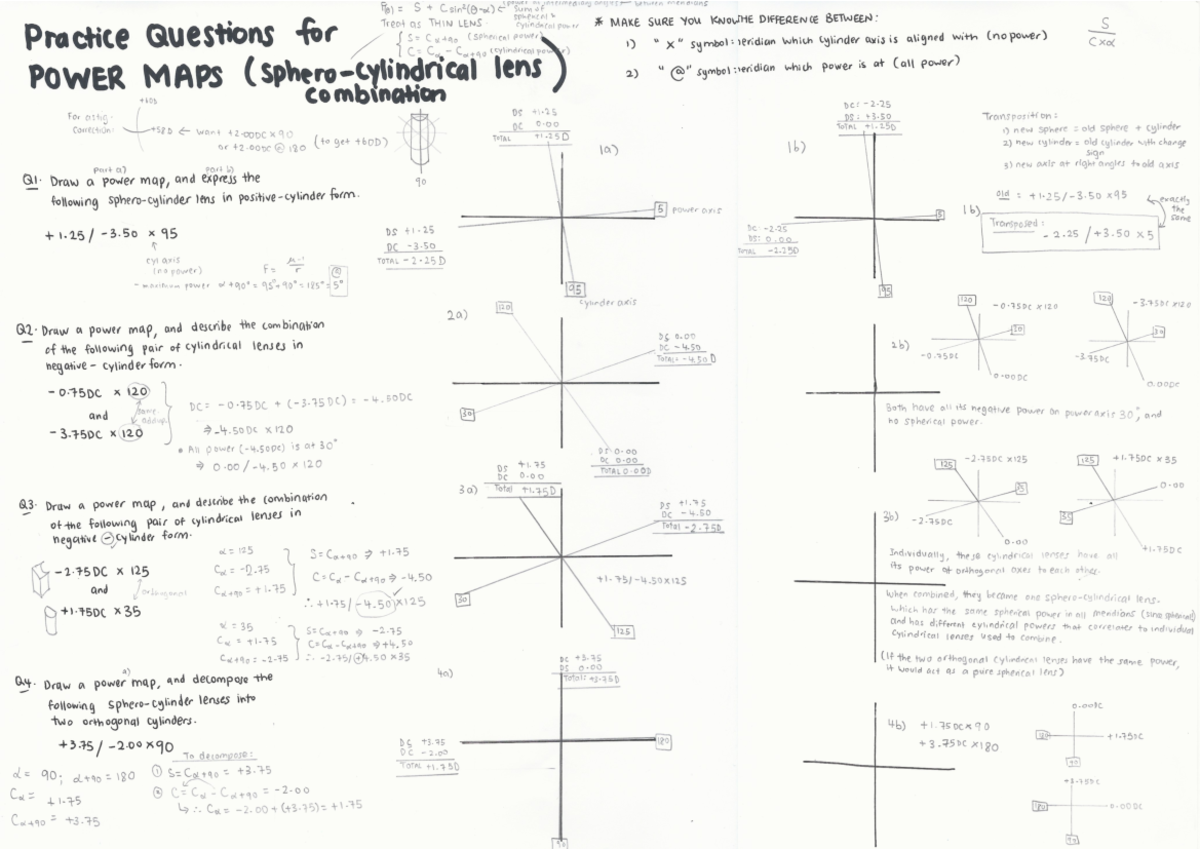 Practice Questions for
POWER MAPS (sphero-cylindrical lens)
combination
P(θ) = S + C sin²(θ-α)
Sum of
spherical &
cylindrical power
Treat as THIN LENS.
S = Cα+90 (spherical power)
C = Cα - Cα+90 (cylindrical power)
* MAKE SURE YOU KNOW THE DIFFERENCE BETWEEN:
1) "x" symbol: meridian which cylinder axis is aligned with (no power)
2) "@" symbol: meridian which power is at (all power)
S
C x α
For astig-
correction:
+60D
+58D ← want +2.00DC x 90
or +2.00DC @ 180 (to get +60D)
90
part a) part b)
Q1. Draw a power map, and express the
following sphero-cylinder lens in positive-cylinder form.
+1.25 / -3.50 x 95
cyl axis
(no power)
- maximum power α+90° = 95°+90° = 185° = 5°
F = μ-1
r
@
1a)
DS +1.25
DC 0.00
TOTAL +1.25D
5 power axis
DS +1.25
DC -3.50
TOTAL -2.25D
95
cylinder axis
1b)
DC: -2.25
DS: +3.50
TOTAL +1.25D
5
DC: -2.25
DS: 0.00
TOTAL -2.25D
95
Transposition:
1) new sphere = old sphere + cylinder
2) new cylinder = old cylinder with change
sign
3) new axis at right angles to old axis
1b)
old = +1.25/-3.50 x 95
Transposed:
-2.25 / +3.50 x 5
exactly
the
same
Q2. Draw a power map, and describe the combination
of the following pair of cylindrical lenses in
negative-cylinder form.
-0.75DC x 120
and
-3.75DC x 120
same
add up
DC = -0.75DC + (-3.75DC) = -4.50DC
⇒ -4.50DC x 120
* All power (-4.50DC) is at 30°
⇒ 0.00 / -4.50 x 120
2a)
120
DS 0.00
DC -4.50
Total = -4.50D
30
DS 0.00
DC 0.00
TOTAL 0.00D
2b)
120
-0.75DC x 120
30
-0.75DC
0.00DC
120
-3.75DC x 120
30
-3.75DC
0.00DC
Both have all its negative power on power axis 30°, and
no spherical power.
Q3. Draw a power map, and describe the combination
of the following pair of cylindrical lenses in
negative ⊖ cylinder form.
-2.75DC x 125
and
orthogonal
+1.75DC x 35
α = 125
Cα = -2.75
Cα+90 = +1.75
S = Cα+90 ⇒ +1.75
C = Cα - Cα+90 ⇒ -4.50
∴ +1.75 / -4.50 x 125
α = 35
Cα = +1.75
Cα+90 = -2.75
S = Cα+90 ⇒ -2.75
C = Cα - Cα+90 ⇒ +4.50
∴ -2.75/+4.50 x 35
3a)
DS +1.75
DC 0.00
Total +1.75D
DS +1.75
DC -4.50
Total -2.75D
+1.75/-4.50x125
30
125
3b)
125
-2.75DC x 125
35
-2.75DC
0.00
125
+1.75DC x 35
0.00
35
+1.75DC
Individually, these cylindrical lenses have all
its power at orthogonal axes to each other.
When combined, they became one sphero-cylindrical lens.
Which has the same spherical power in all meridians (since spherical)
and has different cylindrical powers that correlates to individual
cylindrical lenses used to combine.
(If the two orthogonal cylindrical lenses have the same power,
it would act as a pure spherical lens)
a)
Q4. Draw a power map, and decompose the
following sphero-cylinder lenses into
two orthogonal cylinders.
+3.75 / -2.00 x 90
α = 90; α+90 = 180
Cα = +1.75
Cα+90 = +3.75
To decompose:
① S = Cα+90 = +3.75
② C = Cα - Cα+90 = -2.00
↳ ∴ Cα = -2.00 + (+3.75) = +1.75
4a)
DC +3.75
DS 0.00
Total: +3.75D
DS +3.75
DC -2.00
TOTAL +1.75D
180
90
4b) +1.75DC x 90
+3.75DC x 180
0.00DC
180
+1.75DC
90
+3.75DC
180
0.00DC
90